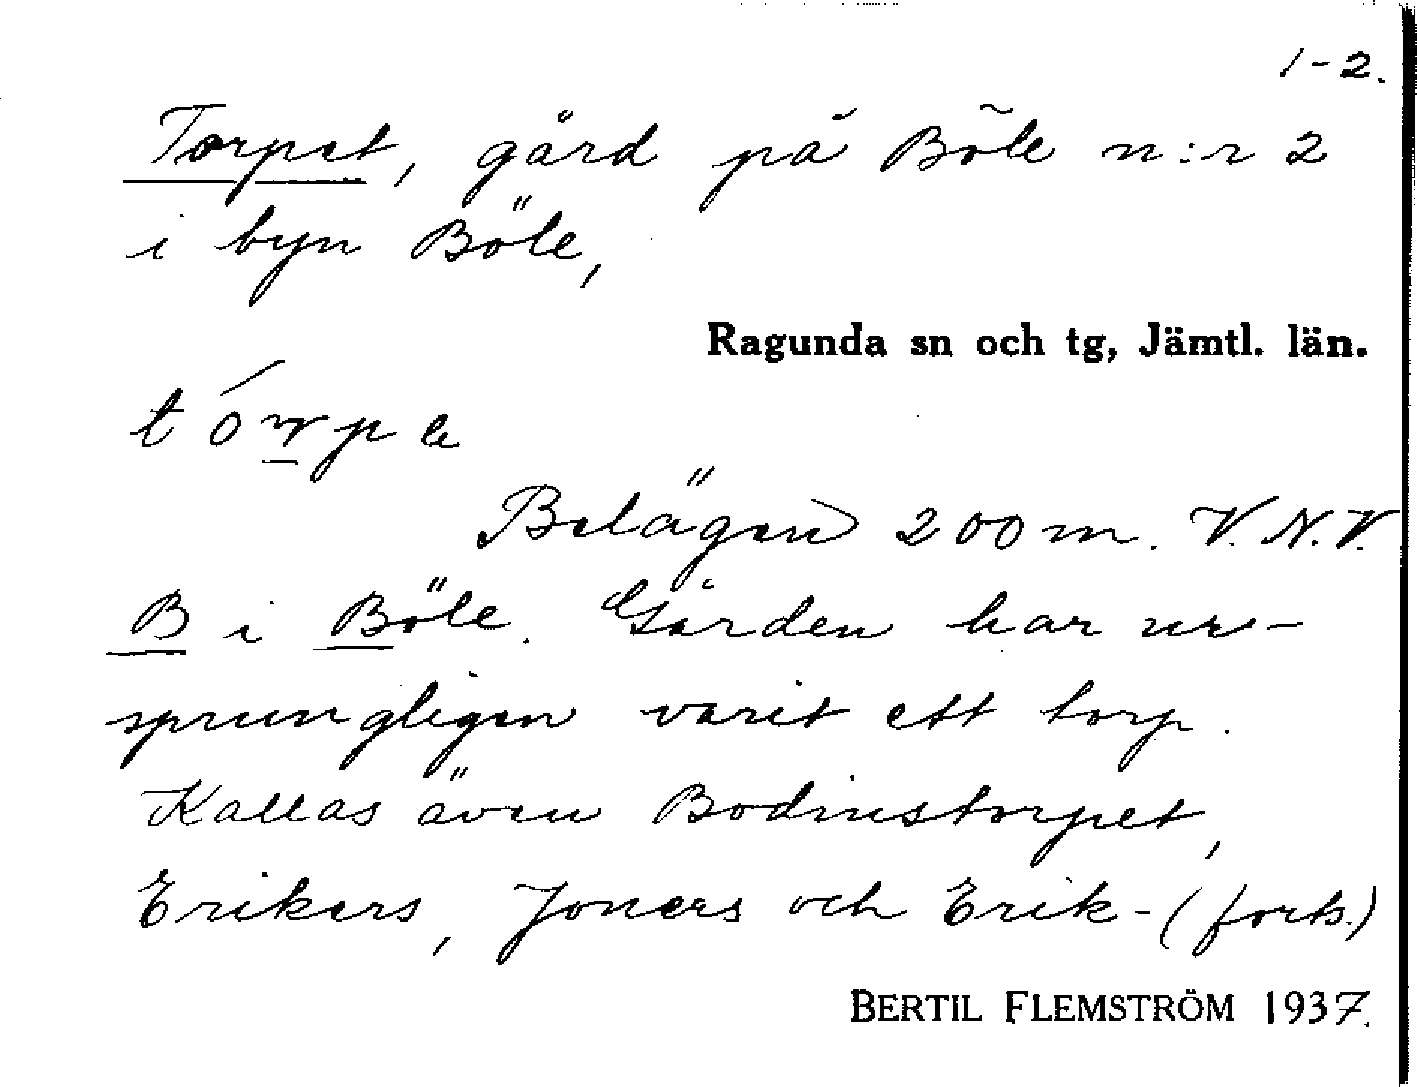 1-2.
Torpet, gård på Böle n:r 2
i byn Böle,
Ragunda sn och tg, Jämtl. län.
tórpe
Belägen 200 m. V.N.V.
B i Böle. Gården har ur-
sprungligen varit ett torp.
Kallas även Bodinstorpet,
Erikers, Joners och Erik-(forts.)
BERTIL FLEMSTRÖM 1937.